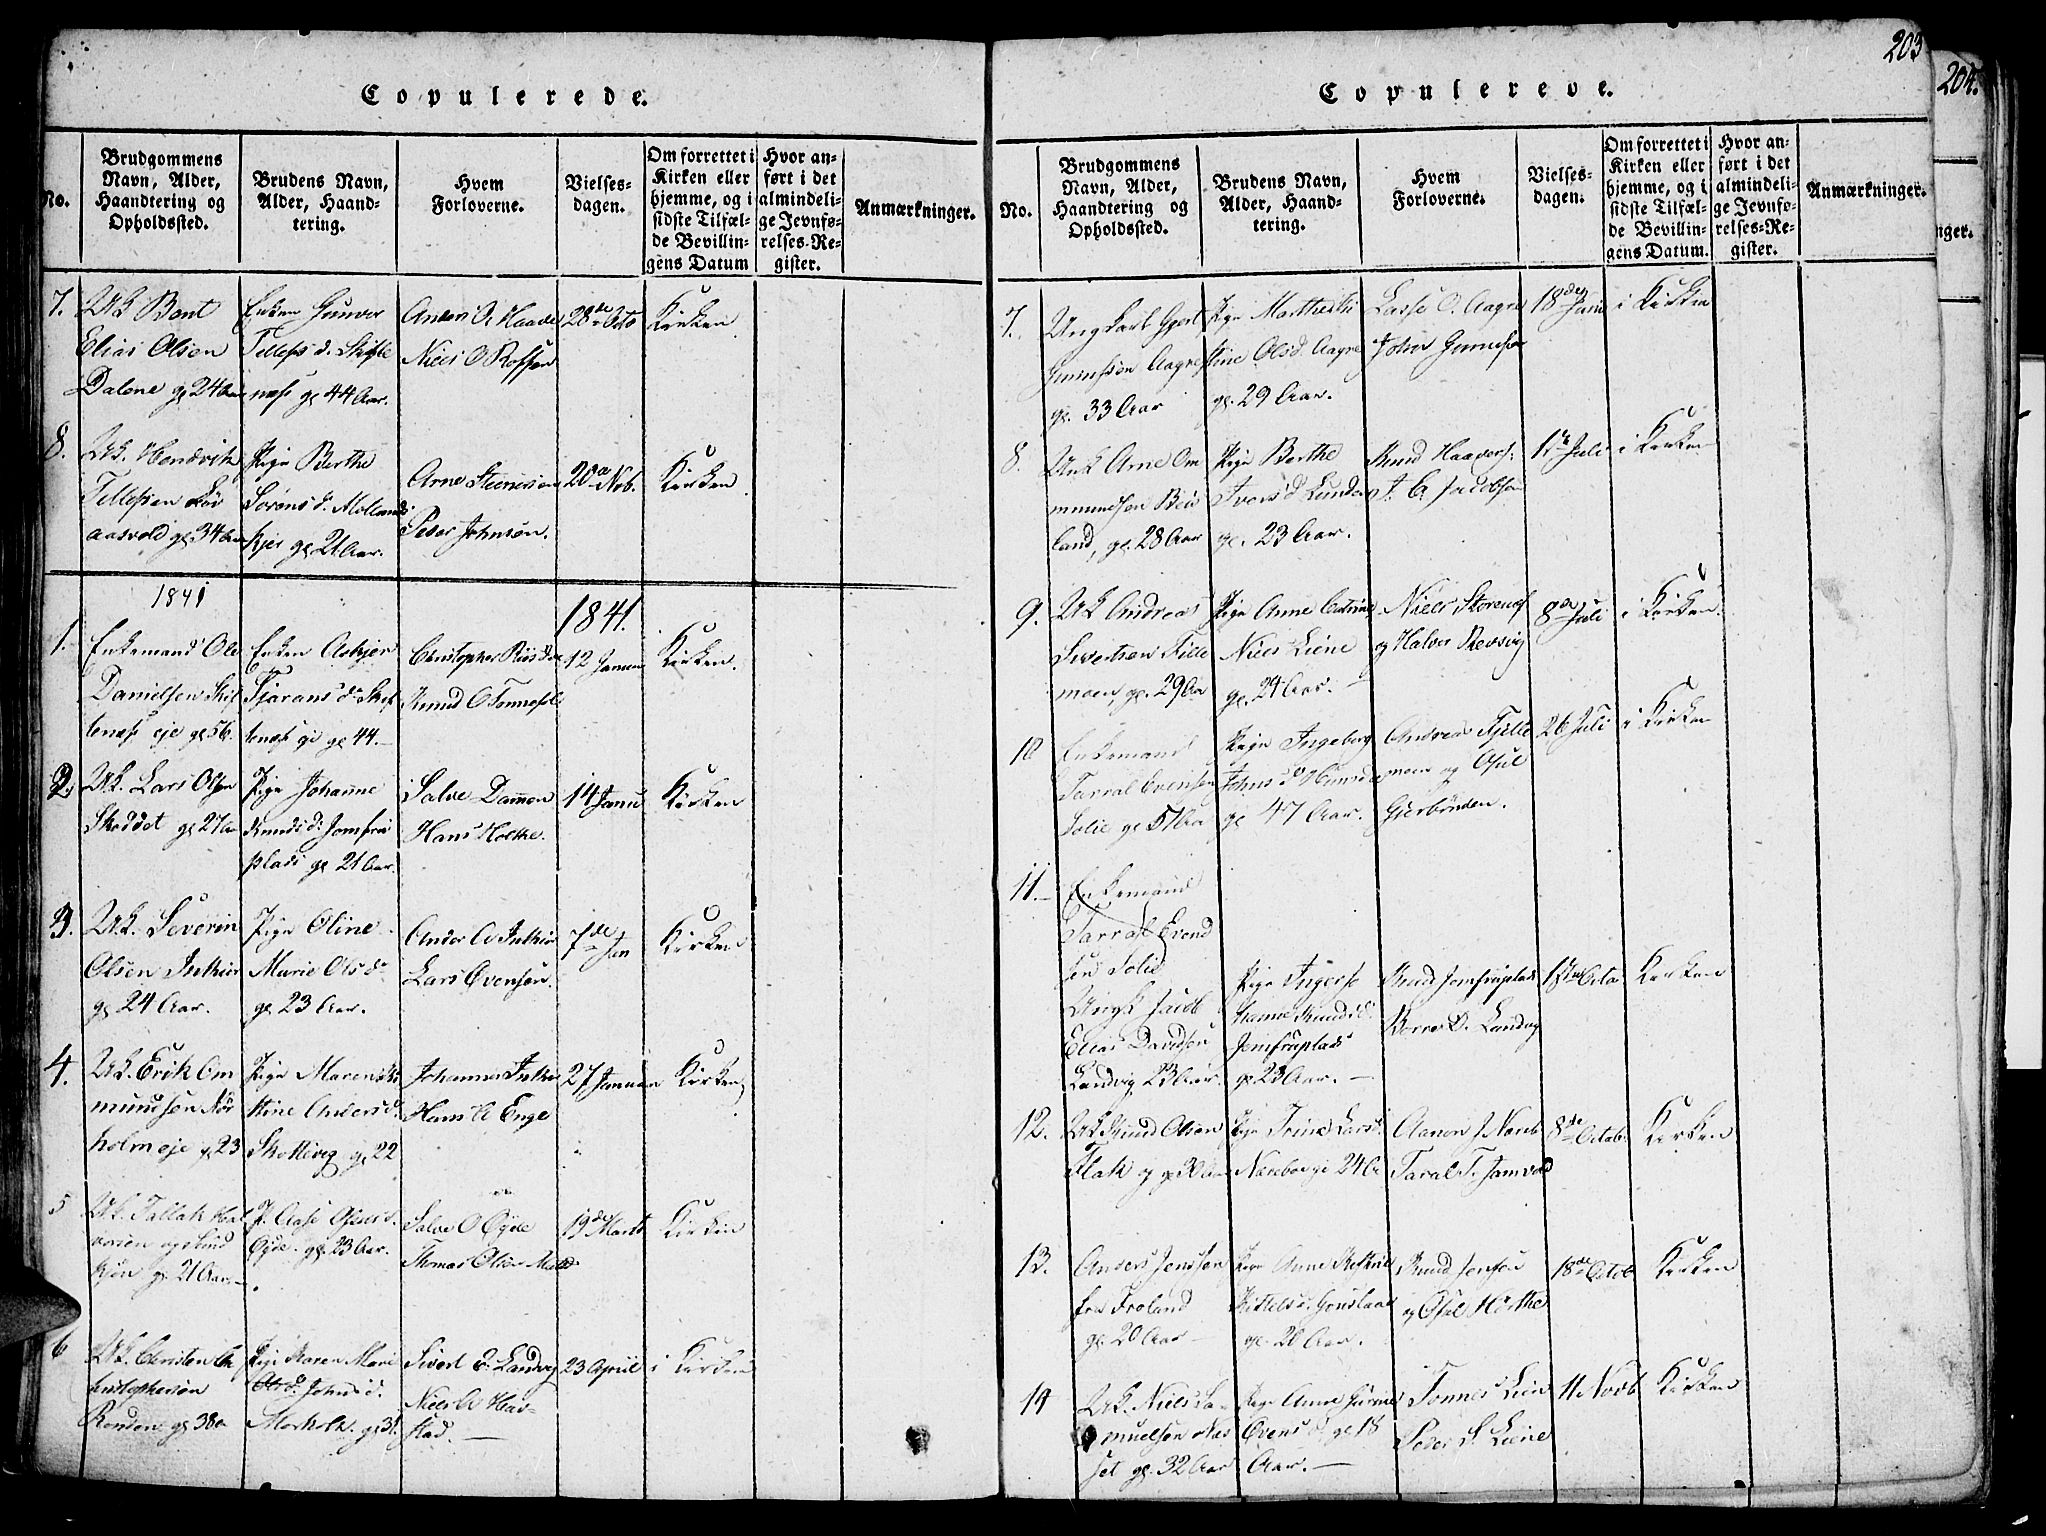 Copulerede.
No.
Brudgommens
Navn, Alder,
Haandtering og
Opholdssted.
Brudens Navn,
Alder, Haand-
tering.
Hvem
Forloverne.
Vielses-
dagen.
Om forrettet i
Kirken eller
hjemme, og i
sidste Tilfæl-
de Bevillin-
gens Datum
Hvor an-
ført i det
almindeli-
ge Jevnfø-
relses-Re-
gister.
Anmærkninger.
7.
UK Bent
Elias Olsen
Dalene gl 24 Aar
Enken Gunvor
Tellefs d. Skifte
næss gl 44 Aar.
Anders O. Haave
Niels O Rossen
28de Octo
Kirken
8.
UK. Hendrik
Tellefsen
aasvold gl 34 Aar
Pige Berthe
Sörens d. Mollands
kjer gl 21 Aar.
Arne Steenersen
Peder Johnsön.
20de Nvb.
Kirken
1841
1.
Enkemand Ole
Danielsen Skif
tenæss eje gl 56.
Enken Askjer
Tjærans d. Skif
tenæss eje gl 44.
Christopher
Knud O Tonnesöl
1841.
12 Januar
Kirken.
2.
UK. Lars Olsen
Skoddet gl 27 Aar
Pige Johanne
Knuds d. Jomfru
plads gl 21 Aar.
Salve Dammen
Hans Holthe.
14 Janu
Kirken
3.
UK. Severin
Olsen Inkier
gl 24 Aar.
Pige Oline
Marie Ols d.
gl 23 Aar.
Anders O Inkier
Lars Evensön.
7de Jan
Kirken
4.
UK. Erik Om
mundsen Nör
holm eje gl 23
Pige Maren
stine Anders d.
Skottevig gl 22
Johannes Inkier
Hans A Enge
27 Januar
Kirken
5
UK. Tallak Hal
vorsen
gl 21 Aar
P. Aase Osuls d.
Öyde. gl 23 Aar.
Salve O Öyde
Thomas Olsen
19de Marts
Kirken
6
UK. Christen Ch
ristophersön
Renden gl 38
Pige Karen Marie
Ols d. Johns d.
Morholt. gl 31.
Sivert E. Landvig
Niels A Hav-
stad.
23 April
i Kirken
203
Copulerede.
No.
Brudgommens
Navn, Alder,
Haandtering og
Opholdssted.
Brudens Navn,
Alder, Haand-
tering.
Hvem
Forloverne.
Vielses-
dagen.
Om forrettet i
Kirken eller
hjemme, og i
sidste Tilfæl-
de Bevillin-
gens Datum.
Hvor an-
ført i det
almindeli-
ge Jevnfø-
relses-Re-
gister.
Anmærkninger.
7.
Ungkarl Gjert
Gunnesön Aagre
gl. 33 Aar
Pige Marthe
stine Ols d. Aagre
gl. 29 Aar.
Lasse O. Aagre
John Gunnesön
18de Juni
i Kirken
8.
UnK Arne Om
mundsen Bie
land, gl. 28 Aar
Pige Berthe
Ivers d. Lunden
gl. 23 Aar.
Knud Haavors:
T. C. Jacobsen
1te Juli
i Kirken
9.
UK Andreas
Sivertsen Fille
moen, gl. 29 Aar
Pige Anne Catrine
Niels Liene
gl. 24 Aar.
Niels Storenæs
og Halvor Revsvig
8de Juli
i Kirken.
10
Enkemand
Tarral Evensen
Solie gl 51 Aar
Pige Ingeborg
Johns d
gl 47 Aar.
Andreas Fjelle
moen og Osul
Gjerbönden.
26 Juli
i Kirken
11.
Enkemand
Tarral Evend
sen Solie
Ungk Jacob
Elias Davidsen
Landvig 23 Aar.
Pige Ingerse
Hanne Knuds d.
Jomfruplads
gl 23 Aar.
Knud Jomfruplads
Börre O. Landvig
1ste Octo
Kirken
12.
UK Knud Olsen
Flak og gl 30 Aar
Pige Trine Lars d.
Nærebo gl 24 A
Aanon J. Næreb
Taral T. Jamvold
8de Octob.
Kirken
13.
Anders Jenssen
fra Froland
gl. 20 Aar
Pige Anne
Kittels d.
gl. 20 Aar.
Knud Jensen
og Osul Holthe
18de Octob
Kirken
14
UK. Niels Sa-
muelsen Næs
set gl. 32 Aar
Pige Anne Gurine
Evens d. gl 18
Aar.
Tönnes Lien
Peder S. Liene
11 Novb
Kirken
204.
nger.